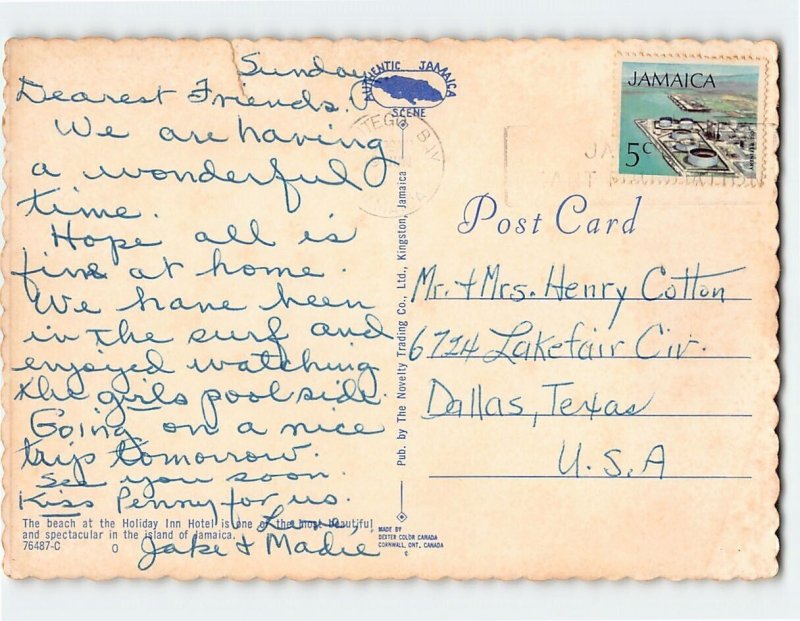 Sunday
Dearest Friends,
We are having
a wonderful
time.
Hope all is
fine at home.
We have been
in the surf and
enjoyed watching
the girls pool side.
Going on a nice
trip tomorrow.
See you soon.
Kiss Penny for us.
Love,
Jake + Madie
The beach at the Holiday Inn Hotel is one of the most beautiful
and spectacular in the island of Jamaica.
76487-C
AUTHENTIC JAMAICA
SCENE
Pub. by The Novelty Trading Co., Ltd., Kingston, Jamaica
MADE BY
DEXTER COLOR CANADA
CORNWALL, ONT. CANADA
JAMAICA
5c
Post Card
Mr. + Mrs. Henry Cotton
6724 Lakefair Cir.
Dallas, Texas
U.S.A